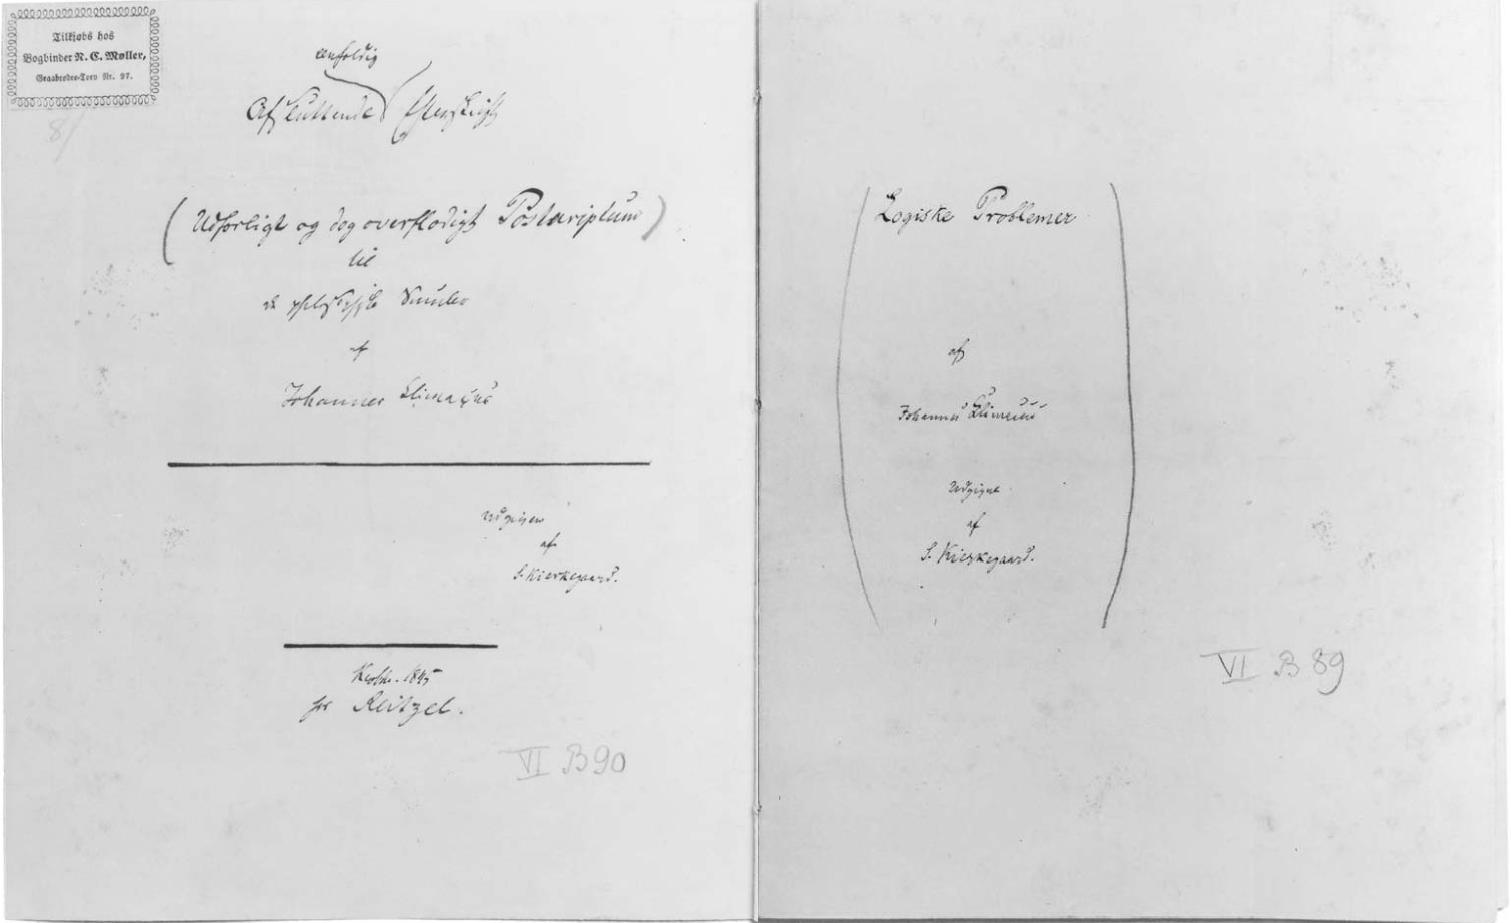 Tilkjøbs hos
Bogbinder N. C. Møller,
Graabrødre-Torv Nr. 97.
eenfoldig
Afsluttende Efterskrift
(Udførligt og dog overflødigt Postscriptum)
til
de philosophiske Smuler
af
Johannes Climacus
Udgiven
af
S. Kierkegaard.
Kjøbh. 1845
hos Reitzel.
VI B 90
(Logiske Problemer)
af
Johannes Climacus
Udgivet
af
S. Kierkegaard.
VI B 89